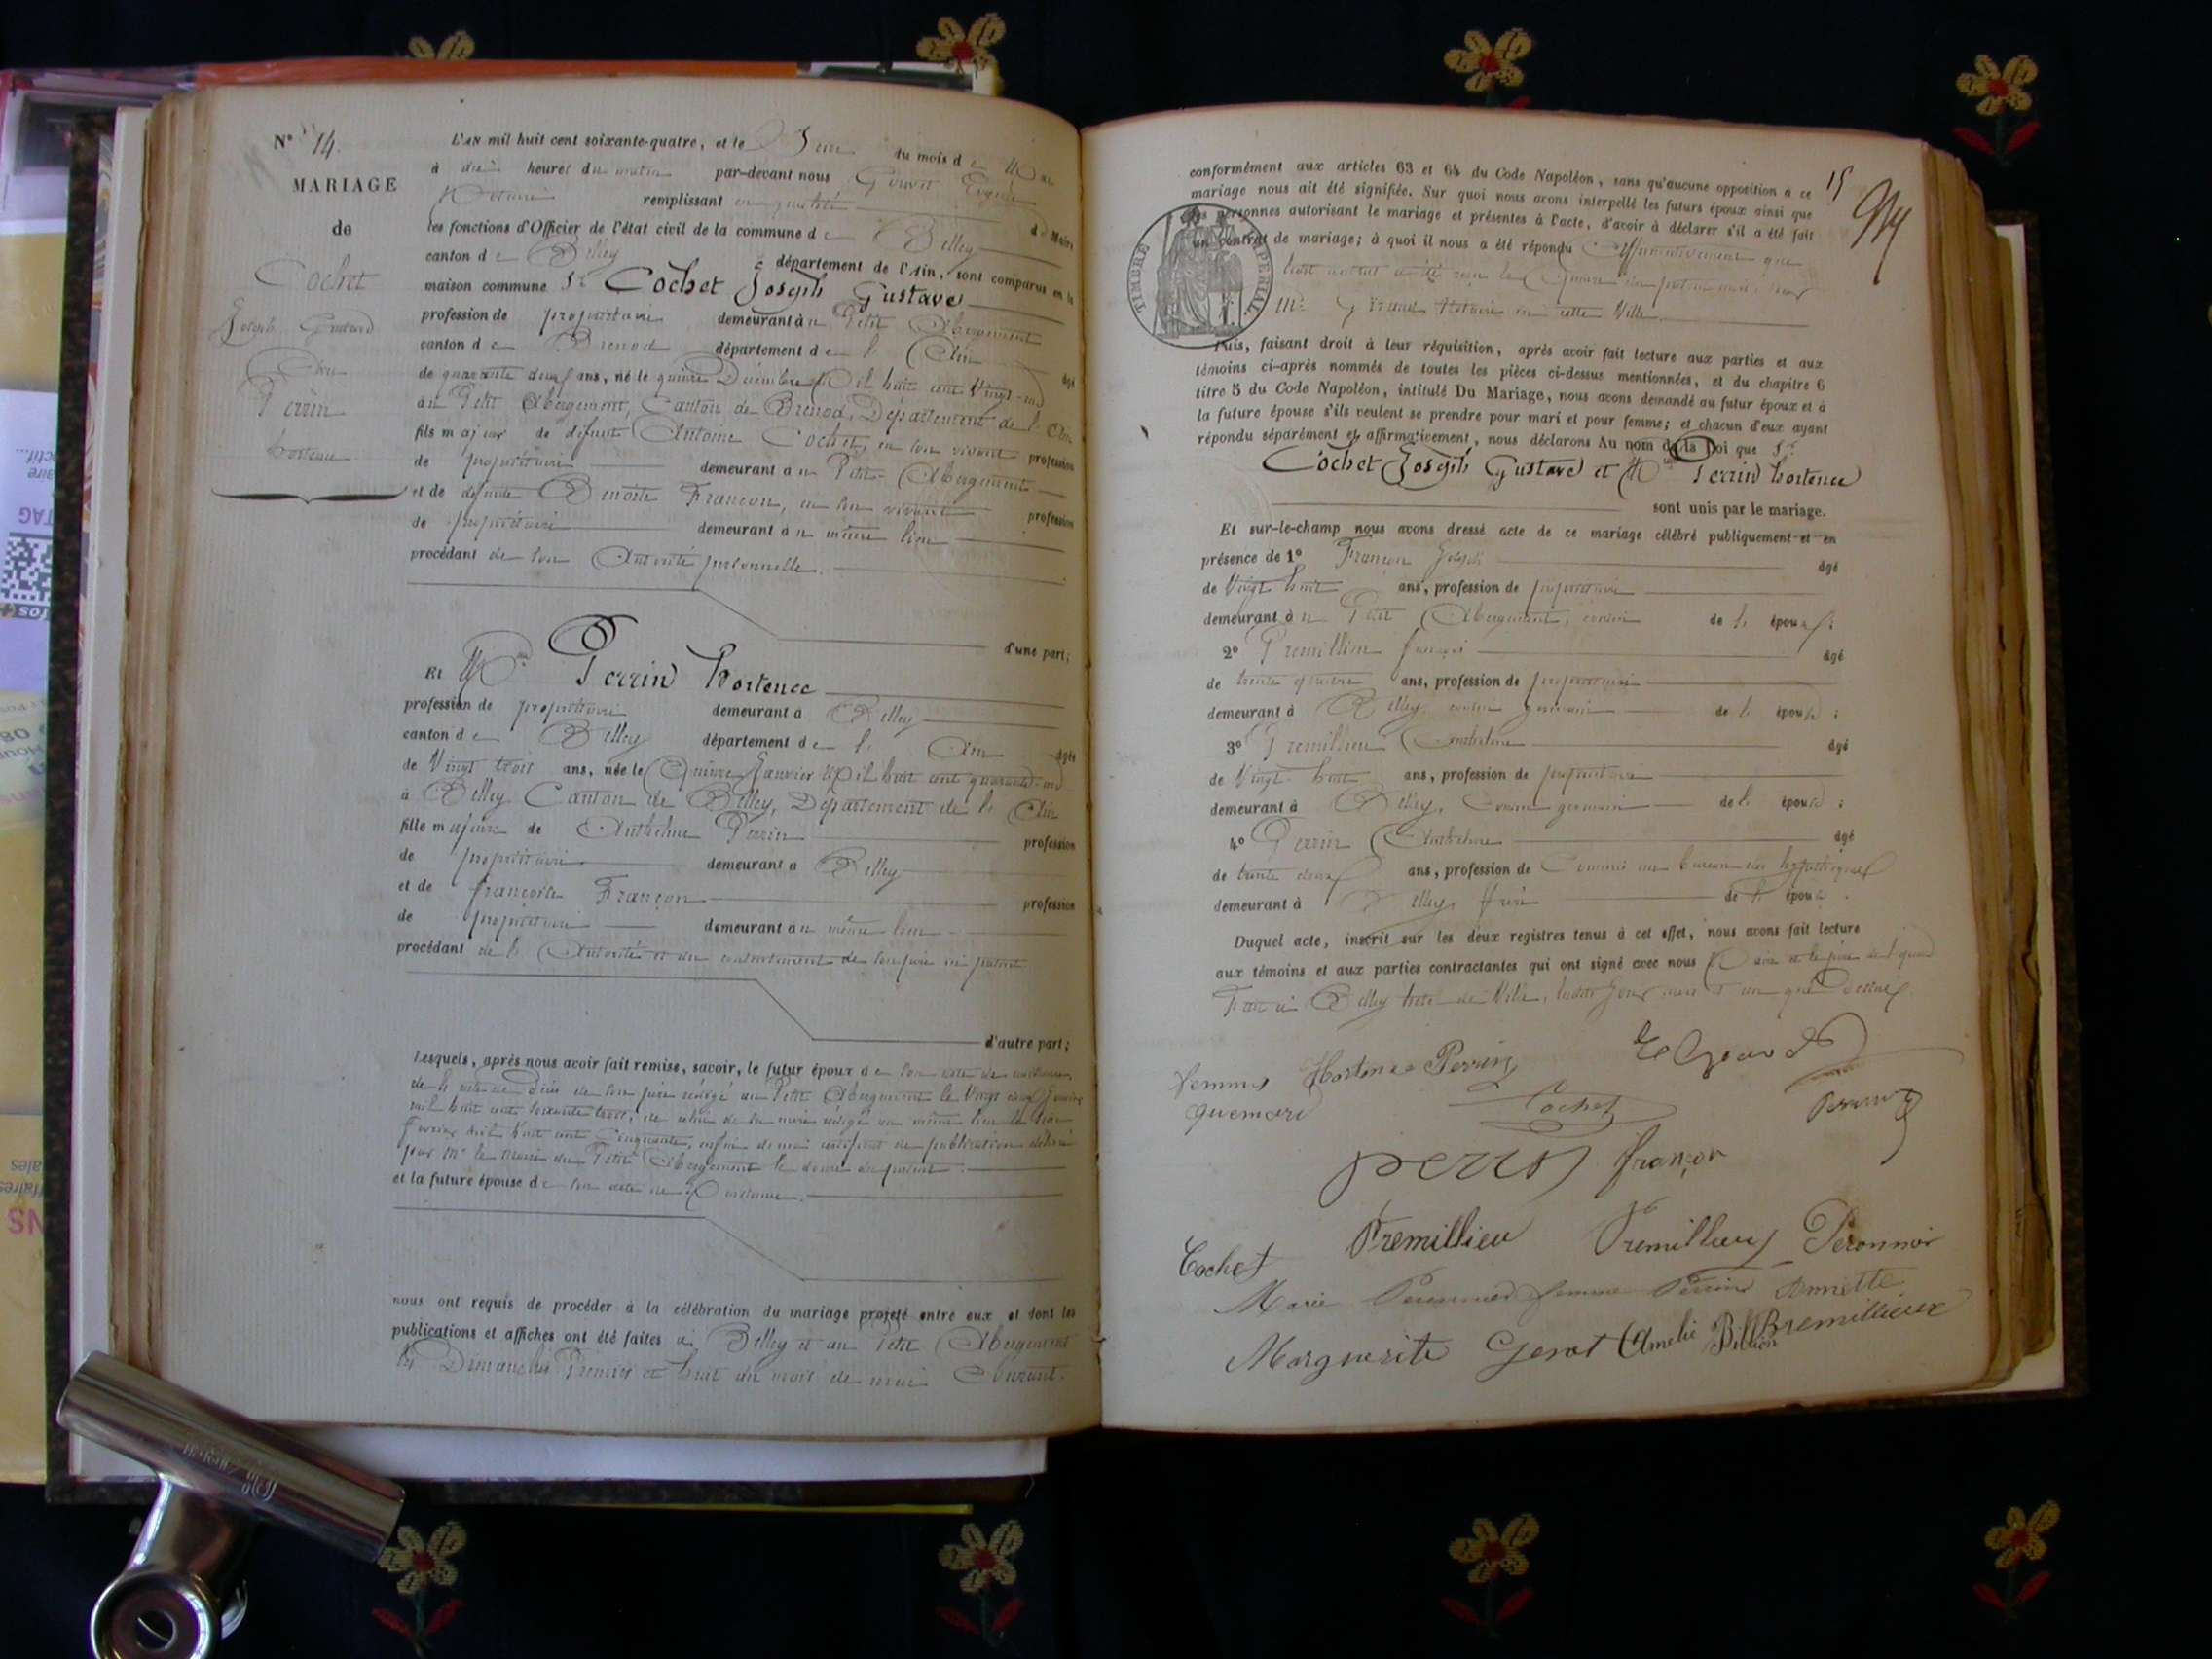 N° 14.
MARIAGE
de
Cochet
Joseph Gustave
Et
Perrin
hortence
L'AN mil huit cent soixante-quatre, et le du mois de Mai
à dix heures du matin par-devant nous
Notaire remplissant en qualité de Maire
les fonctions d'Officier de l'état civil de la commune de Belley
canton de Belley département de l'Ain, sont comparus en la
maison commune Sr Cochet Joseph Gustave
profession de propriétaire demeurant au Petit Abergement
canton de Brenod département de l' Ain âgé
de quarante deux ans, né le quinze Décembre Mil huit cent Vingt-un
au Petit Abergement, Canton de Brenod, Département de l'Ain
fils majeur de défunt Antoine Cochet, en son vivant profession
de propriétaire demeurant au Petit-Abergement
et de défunte Benoite Françon, en son vivant profession
de propriétaire demeurant au même lieu
procédant de son Autorité personnelle.
d'une part;
Et Perrin hortence
profession de propriétaire demeurant à Belley
canton de Belley département de l' Ain âgée
de Vingt trois ans, née le Quinze Janvier Mil huit cent quarante-un
à Belley Canton de Belley, Département de l'Ain
fille majeure de Anthelme Perrin profession
de propriétaire demeurant à Belley
et de françoise Françon profession
de propriétaire demeurant au même lieu
procédant de l'Autorité et du consentement de son père ici présent
d'autre part;
Lesquels, après nous avoir fait remise, savoir, le futur époux de son acte de naissance,
de l'acte de décès de son père rédigé au Petit Abergement le Vingt deux Janvier
mil huit cent soixante trois, de celui de sa mère rédigé au même lieu le
fevrier mil huit cent Cinquante, enfin de certificat de publication délivré
par Mr le Maire du Petit Abergement le douze du présent
et la future épouse de son acte de Naissance.
nous ont requis de procéder à la célébration du mariage projeté entre eux et dont les
publications et affiches ont été faites à Belley et au Petit Abergement
les Dimanches Premier et huit du mois de mai Courant.
15
conformément aux articles 63 et 64 du Code Napoléon, sans qu'aucune opposition à ce
mariage nous ait été signifiée. Sur quoi nous avons interpellé les futurs époux ainsi que
les personnes autorisant le mariage et présentes à l'acte, d'avoir à déclarer s'il a été fait
un contrat de mariage; à quoi il nous a été répondu Affirmativement que
TIMBRE IMPERIAL.
Notaire en cette Ville
Puis, faisant droit à leur réquisition, après avoir fait lecture aux parties et aux
témoins ci-après nommés de toutes les pièces ci-dessus mentionnées, et du chapitre 6
titre 5 du Code Napoléon, intitulé Du Mariage, nous avons demandé au futur époux et à
la future épouse s'ils veulent se prendre pour mari et pour femme; et chacun d'eux ayant
répondu séparément et affirmativement, nous déclarons Au nom de la Loi que Sr
Cochet Joseph Gustave et Perrin hortence
sont unis par le mariage.
Et sur-le-champ nous avons dressé acte de ce mariage célébré publiquement et en
présence de 1° Françon Joseph âgé
de Vingt huit ans, profession de propriétaire
demeurant au Petit Abergement, cousin de l' époux;
2° Premillieu françois âgé
de trente quatre ans, profession de propriétaire
demeurant à Belley cousin germain de l' épouse;
3° Premillieu Anthelme âgé
de Vingt-huit ans, profession de propriétaire
demeurant à Belley, Cousin germain de l' épouse;
4° Perrin Anthelme âgé
de trente deux ans, profession de Commis au bureau des hypothèques
demeurant à Belley frère de l' épouse.
Duquel acte, inscrit sur les deux registres tenus à cet effet, nous avons fait lecture
aux témoins et aux parties contractantes qui ont signé avec nous Maire et le père de l'épouse
Fait à Belley hotel-de-Ville, lesdits Jour mois et an que Dessus.
femme Hortense Perrin
quemard Cochet Perrin
perrin françon
Premillieu Premillieu Peronnier
Cochet
Marie femme Perrin Annette
Marguerite Genot Amelie Billion Bremillieux